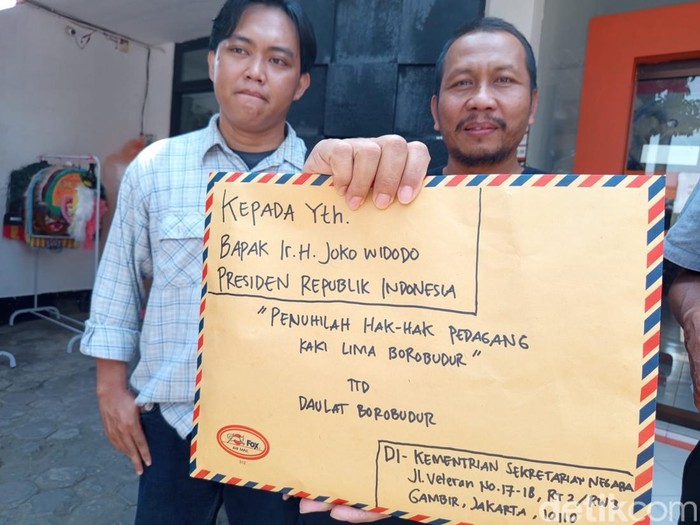 KEPADA Yth.
BAPAK Ir. H. JOKO WIDODO
PRESIDEN REPUBLIK INDONESIA
"PENUHILAH HAK-HAK PEDAGANG
KAKI LIMA BOROBUDUR"
TTD
DAULAT BOROBUDUR
FOX
AIR MAIL
DI- KEMENTRIAN SEKRETARIAT NEGARA
Jl. Veteran No. 17-18, RT 2/RW 3
GAMBIR, JAKARTA, 10110
detikcom